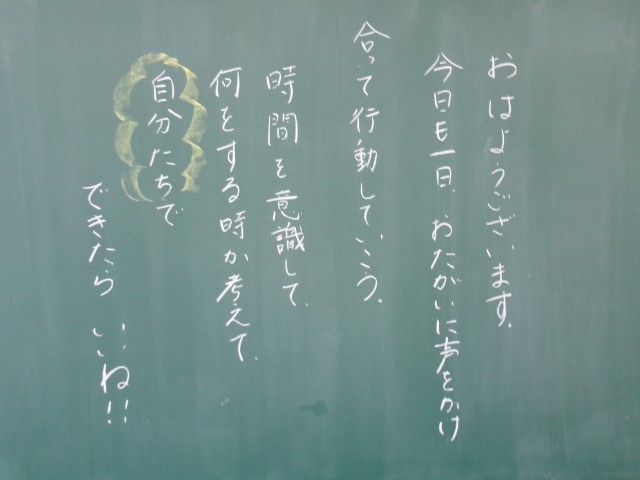 おはようございます。
今日も一日、おたがいに声をかけ
合って行動していこう。
時間を意識して、
何をする時か考えて、
自分たちで
できたら いいね!!